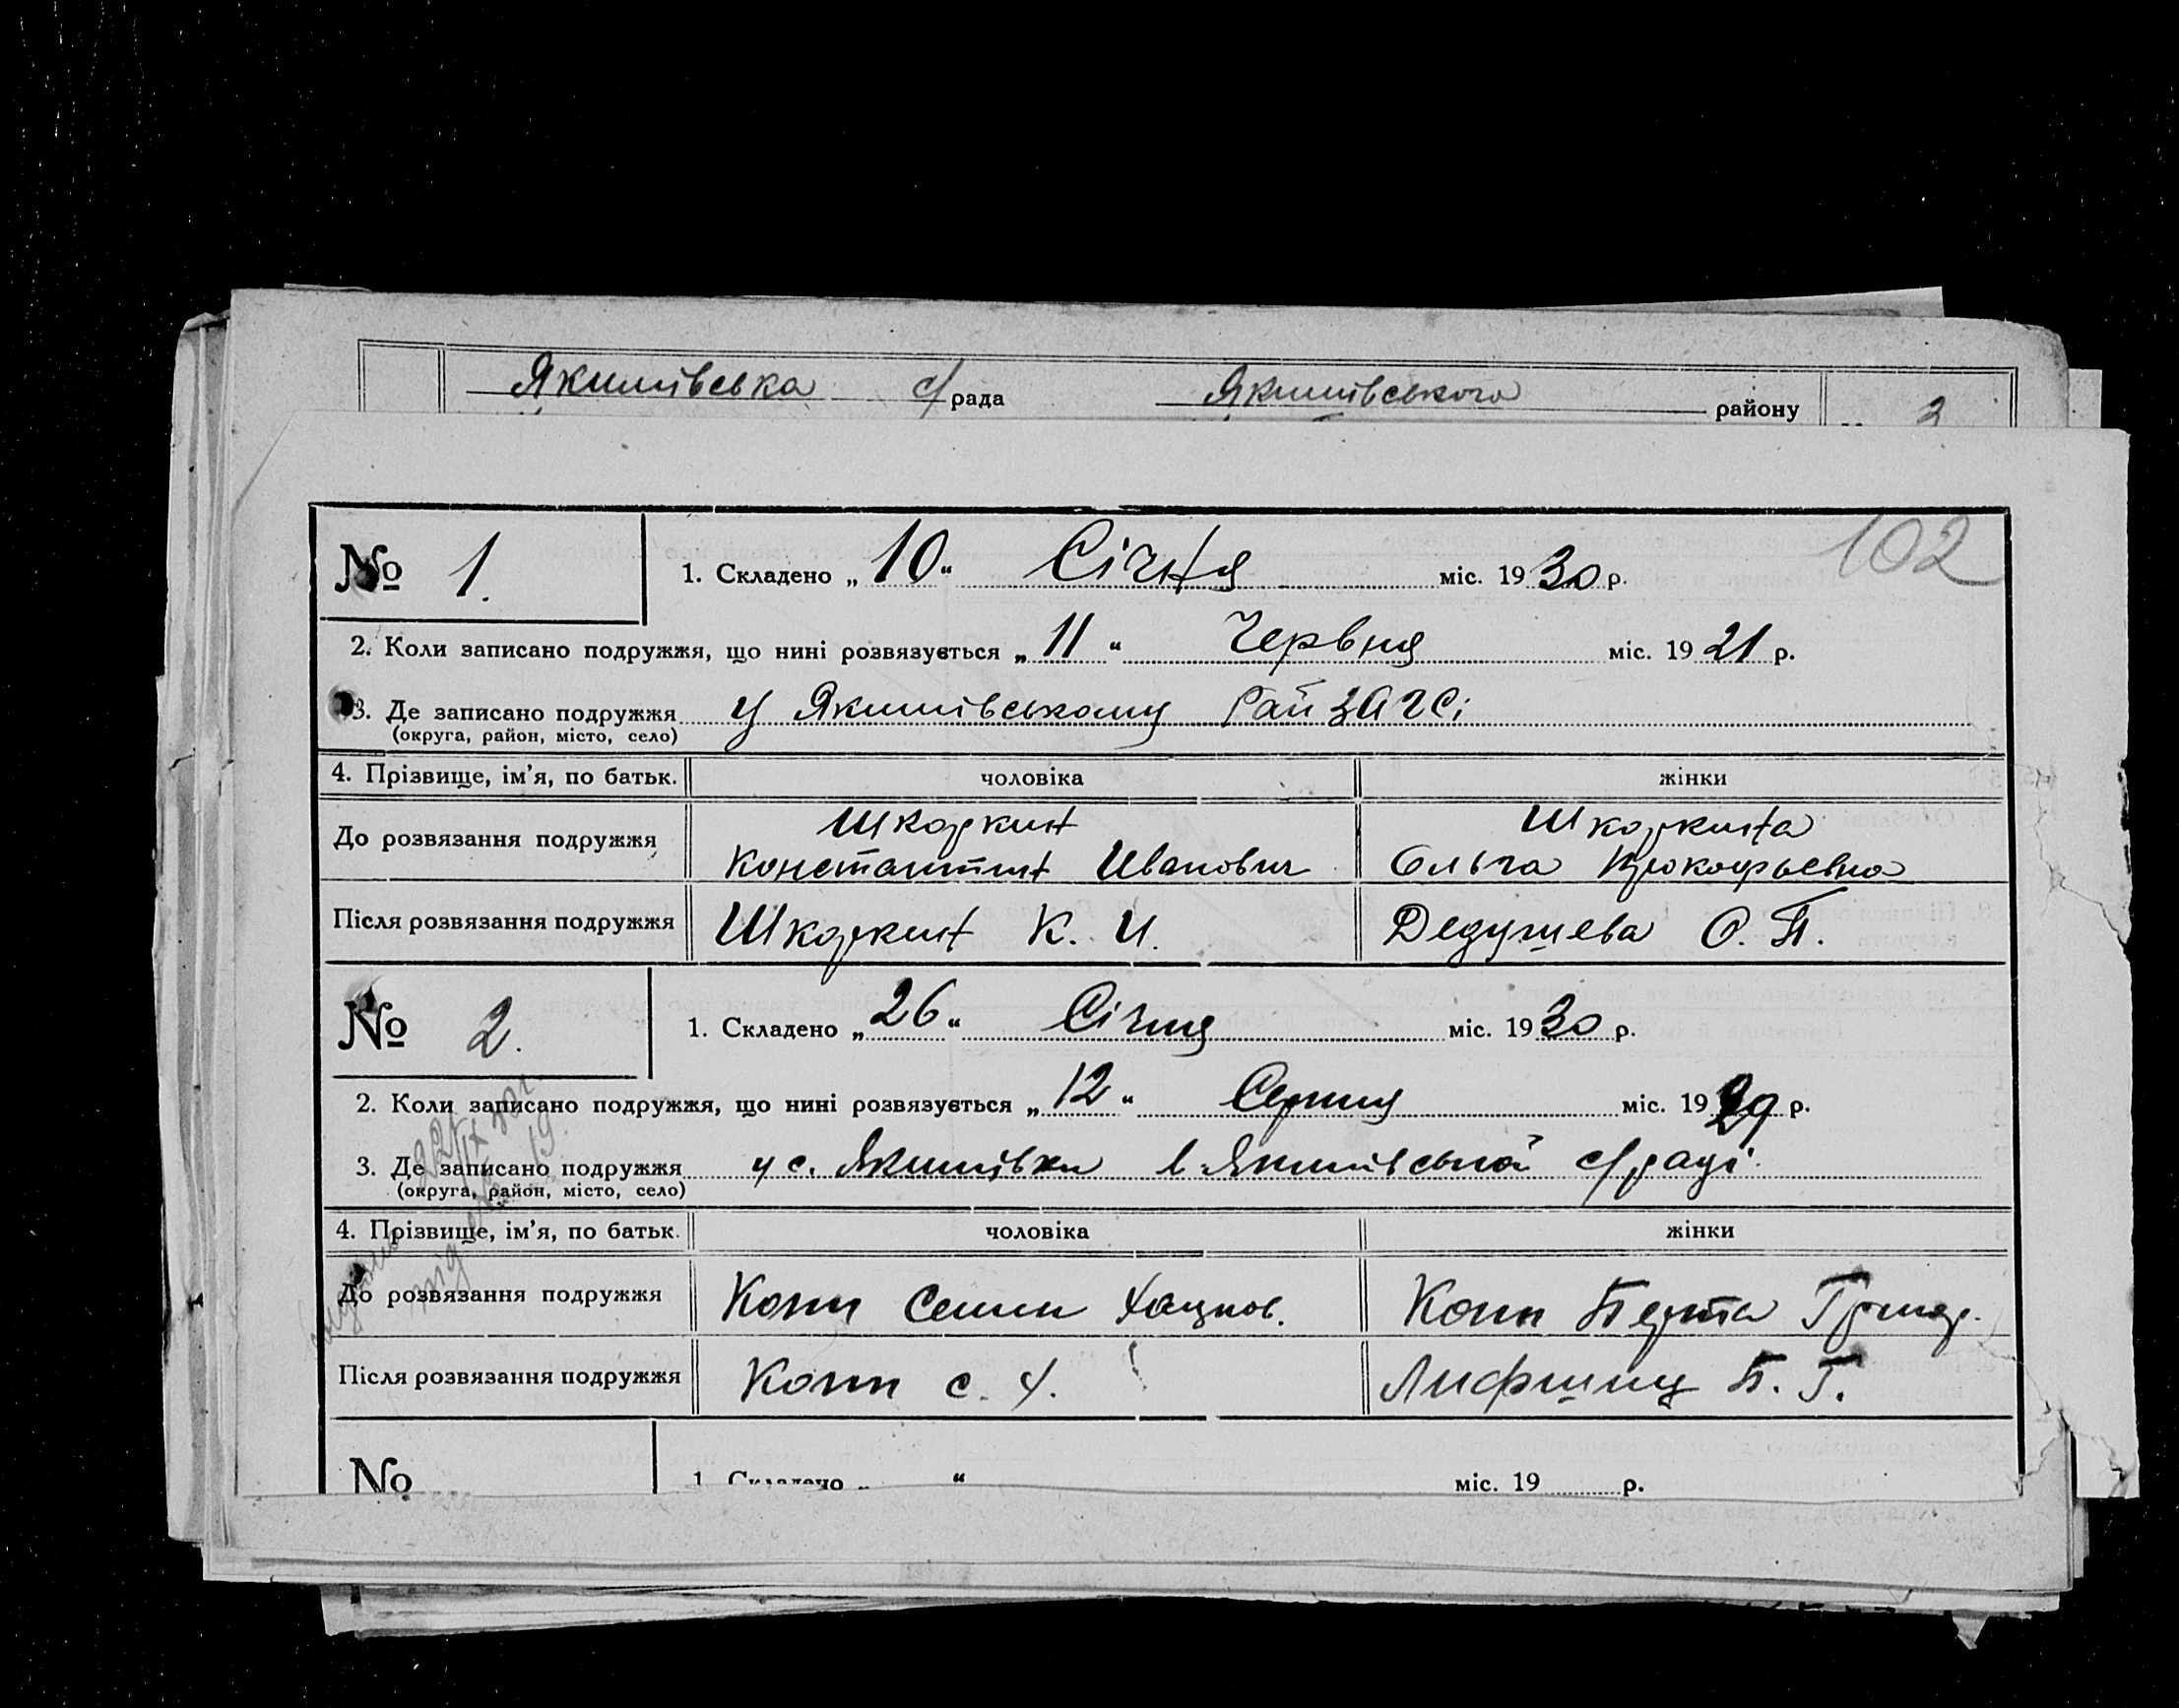 Якимівська с/рада Якимівського району 3
102
№ 1. 1. Складено „10“ Січня міс. 1930 р.
2. Коли записано подружжя, що нині розвязується „11“ Червня міс. 1921 р.
3. Де записано подружжя у Якимівському Рай ЗАГСі
(округа, район, місто, село)
4. Прізвище, ім’я, по батьк. чоловіка жінки
До розвязання подружжя
Шкодкин Константин Иванович
Шкодкина Ольга Прокофьевна
Після розвязання подружжя Шкодкин К. И. Дедушева О. П.
№ 2. 1. Складено „26“ Січня міс. 1930 р.
2. Коли записано подружжя, що нині розвязується „12“ Серпня міс. 1929 р.
3. Де записано подружжя у с. Якимівки в Якимівській с/раді
(округа, район, місто, село)
4. Прізвище, ім’я, по батьк. чоловіка жінки
До розвязання подружжя Копп Семен Копп Берта Григор.
Після розвязання подружжя Копп С. Х. Лифшиц Б. Г.
№ 1. Складено „ “ міс. 19 р.